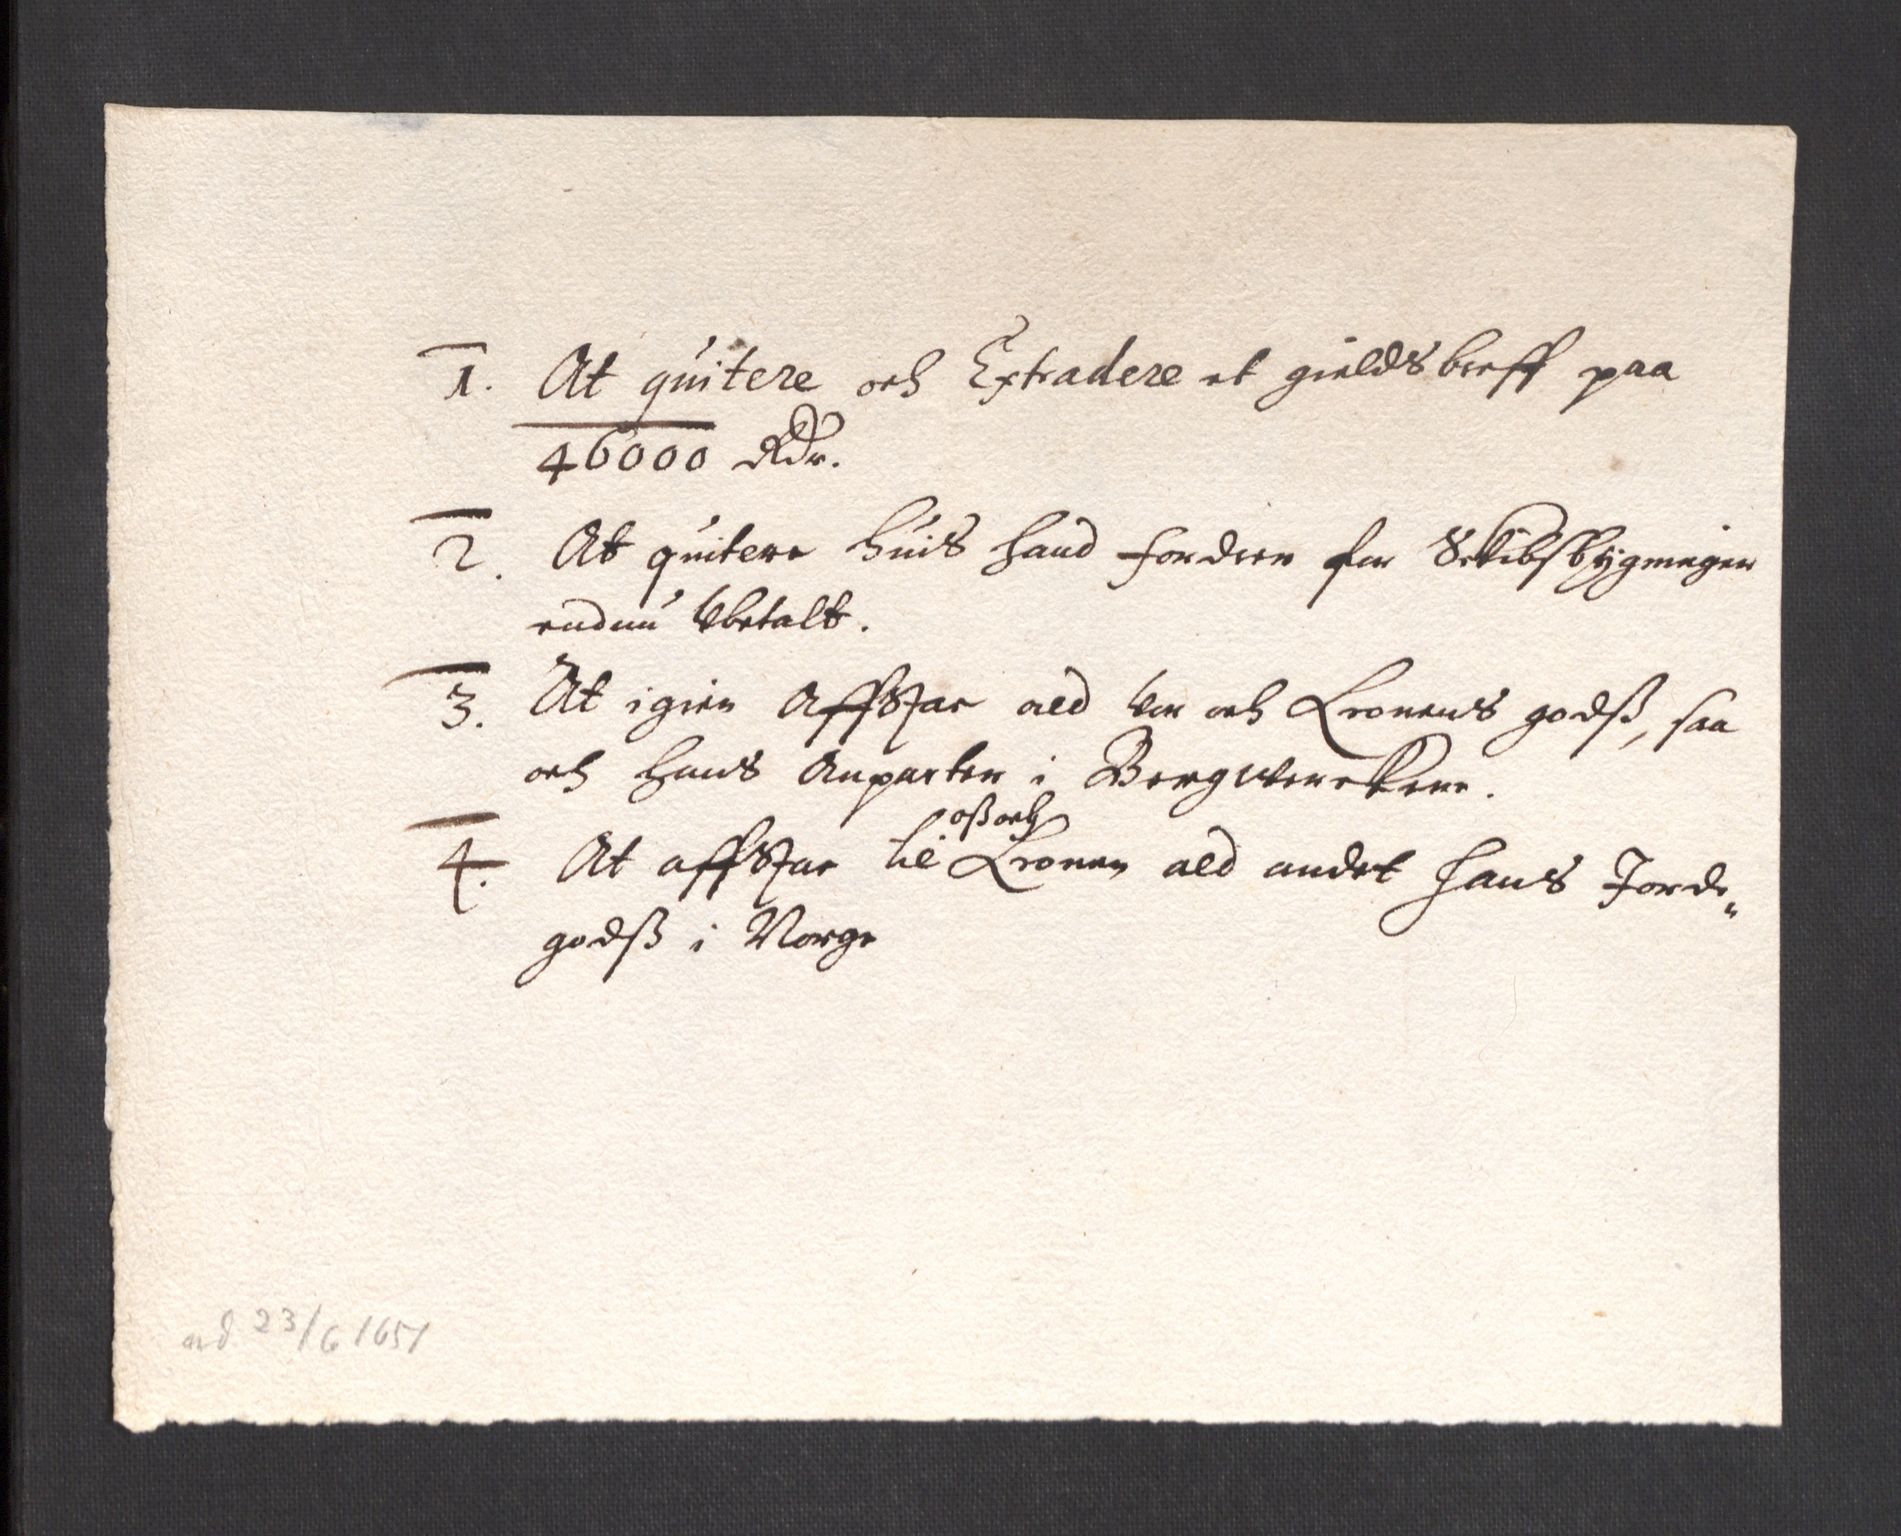 1. At quitere och Extradere et gieldsbreff paa
46000 Rdr.
2. At quitere huis hand fordrer for Skibsbygninger
endnu Ubetalt.
3. At igien Affstaa ald Vor och Cronens godß, saa
och hans Anparter i Bergverckerne.
oß och
4. At affstaa til Cronen ald andet hans Jorde„
godß i Norge
23/6 1651